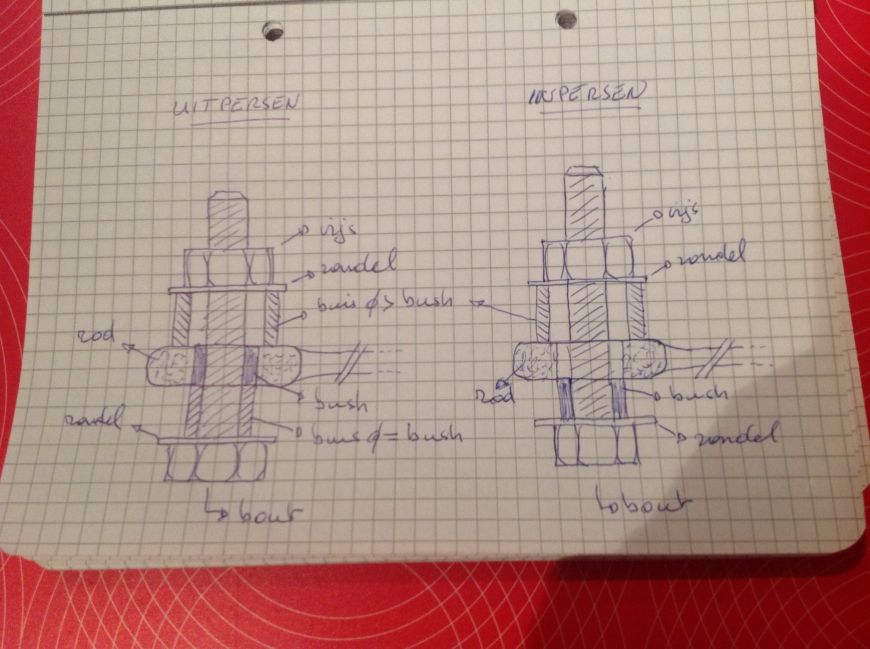 UITPERSEN
vijs
rondel
buis φ > bush
rod
bush
rondel
buis φ = bush
bout
INPERSEN
vijs
rondel
rod
bush
rondel
bout